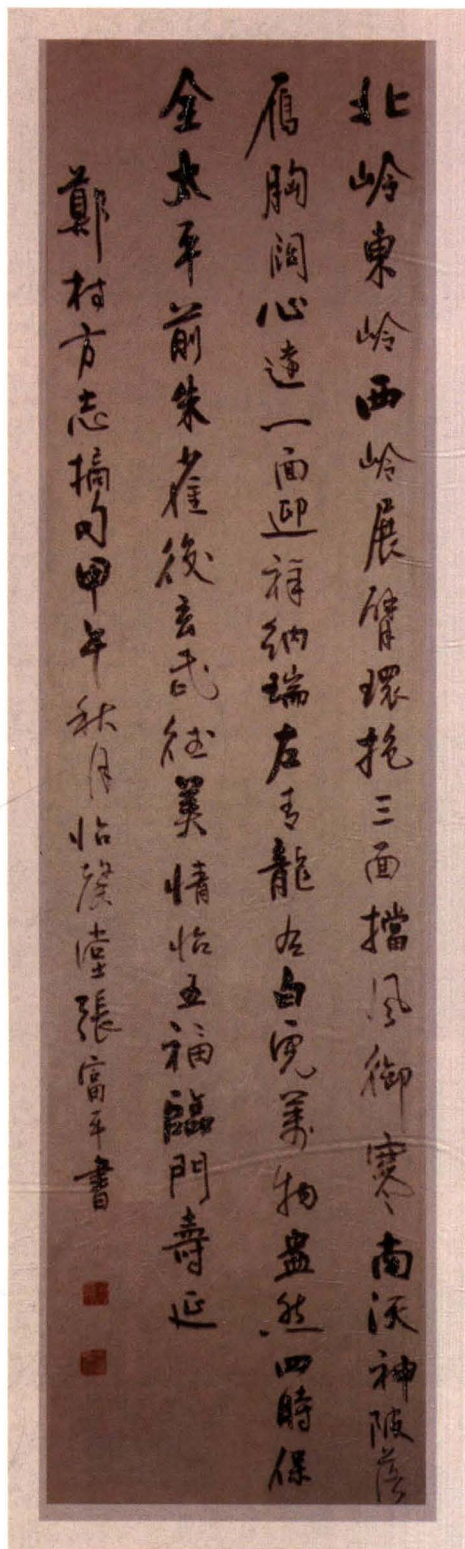 北岭東岭西岭展臂環抱三面擋風御寒南沃神陂落
雁胸闊心達一面迎祥納瑞左青龍右白虎萬物盎然四時保
全太平前朱雀後玄武德美情怡五福臨門壽延
鄭村方志摘句甲午秋月怡馨堂張富平書